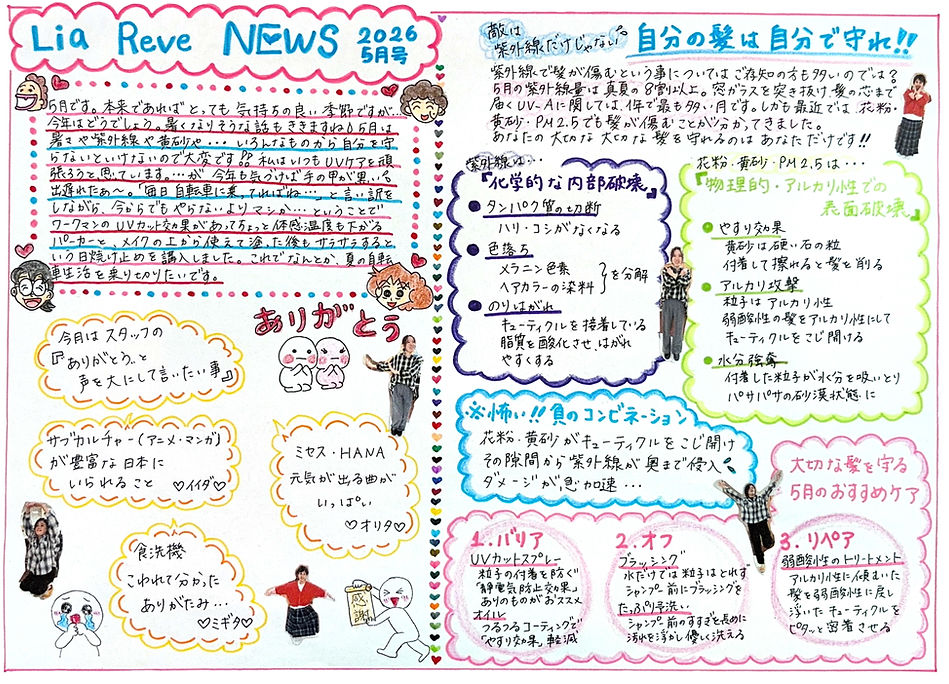 Lia Reve NEWS 2026
5月号
5月です。本来であればとっても気持ちの良い季節ですが、
今年はどうでしょう。暑くなりそうな話もききますね。5月は
暑さや紫外線や黄砂や…いろんなものから自分を守
らないといけないので大変です!? 私はいつもUVケアを頑
張ろうと思っています。…が 今年も気づけば手の甲が黒い。
出遅れたぁ〜。「毎日自転車に乗ってればね…」と言い訳を
しながら、今からでもやらないよりマシかい、ということで
ワークマンのUVカット効果があってちょっと体感温度も下がる
パーカーと、メイクの上から使えて塗った後もサラサラするとい
う日焼け止めを購入しました。これでなんとか、夏の自転
車生活を乗り切りたいです。
ありがとう
今月はスタッフの
『ありがとう。と
声を大にして言いたい事』
サブカルチャー(アニメ・マンガ)
が豊富な日本に
いられること ♡イイダ♡
ミセス・HANA
元気が出る曲が
いっぱい
♡オリタ♡
食洗機
こわれて分かった
ありがたみ…
♡ミギタ♡
感謝
敵は
紫外線だけじゃない
自分の髪は自分で守れ!!
紫外線で髪が傷むという事についてはご存知の方も多いのでは?
5月の紫外線量は真夏の8割以上。窓ガラスを突き抜け、髪の芯まで
届くUV-Aに関しては、1年で最も多い月です。しかも最近では、花粉・
黄砂・PM2.5でも髪が傷むことが分かってきました。
あなたの大切な大切な髪を守れるのはあなただけです!!
紫外線は…
『化学的な内部破壊』
● タンパク質の切断
ハリ・コシがなくなる
● 色落ち
メラニン色素
ヘアカラーの染料
}を分解
● のりはがれ
キューティクルを接着している
脂質を酸化させ、はがれ
やすくする
花粉・黄砂・PM2.5は…
『物理的・アルカリ性での
表面破壊』
● やすり効果
黄砂は硬い石の粒
付着して擦れると髪を削る
● アルカリ攻撃
粒子はアルカリ性
弱酸性の髪をアルカリ性にして
キューティクルをこじ開ける
● 水分強奪
付着した粒子が水分を吸いとり
パサパサの砂漠状態に
※怖い!!負のコンビネーション
花粉・黄砂がキューティクルをこじ開け
その隙間から紫外線が奥まで侵入
ダメージが急加速…
大切な髪を守る
5月のおすすめケア
1.バリア
UVカットスプレー
粒子の付着を防ぐ
「静電気防止効果」
ありのものがおススメ
オイル
つるつるコーティングで
「やすり効果」軽減
2.オフ
ブラッシング
水だけでは粒子はとれず
シャンプー前にブラッシングを
たっぷり予洗い
シャンプー前のすすぎを長めに
汚れを浮かし優しく洗える
3.リペア
弱酸性のトリートメント
アルカリ性に傾いた
髪を弱酸性に戻し
浮いたキューティクルを
ピタッと密着させる